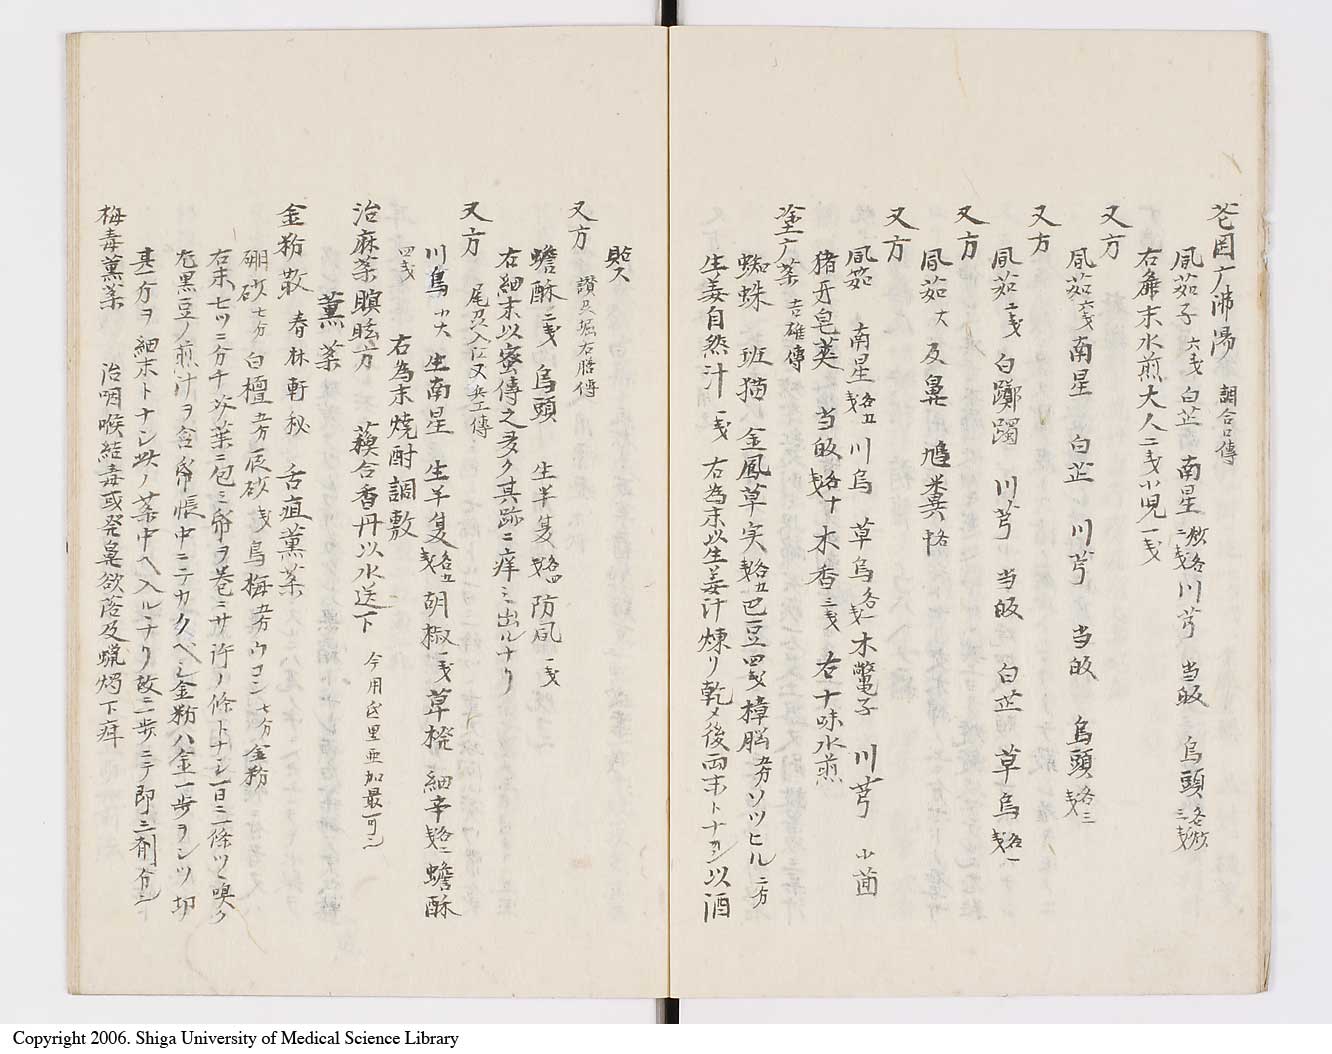 調合口傳
凬茄子 六戔 白芷 南星 川芎 当皈 烏頭
右麁末水煎大人二戔小児一戔
又方
凬茄 六戔 南星 白芷 川芎 当皈 烏頭 各三戔
又方
凬茄 二戔 白躑躅 川芎 当皈 白芷 草烏 各一戔
又方
凬茄 大 及 鳩糞 各十
又方
凬茄 南星 各五戔 川烏 草烏 各一戔 木鱉子 川芎 小茴
猪牙皂莢 当皈 各十戔 木香 三戔 右十味水煎
塗广薬 吉雄傳
蜘蛛 班猫 金鳳草実 各五戔 巴豆 四戔 樟脳 五分 ソツヒル 二方
生姜自然汁 一戔 右為末以生姜汁煉リ乾メ後両末トナシ以酒
貼ス
又方 讃 堀右膳傳
蟾酥 二戔 烏頭 生半夏 各四戔 防凬 一戔
右細末以蜜傳之多ク其跡ニ痒ミ出ルナリ
又方
川烏 生南星 生半夏 各五戔 胡椒 一戔 草撥 細辛 各二戔 蟾酥
四戔 右為末焼酎調敷
治麻薬瞋眩方 蘓合香丹以水送下 今用底里亜加最可シ
薫薬
金粉散 春林軒秘 舌疽薫薬
硼砂 七分 白檀 五分 辰砂 一戔 烏梅 五分 ウコン 七分 金粉
右末七ツニ分チ
左黒豆ノ煎汁ヲ含 帋帳中ニテカクベシ金粉ハ金一歩ヲシツ切
其一分ヲ細末トナシ此ノ薬中ヘ入ルナリ故ニ歩ニテ即ニ剤分シ
梅毒薫薬 治咽喉結毒或発鼻欲落及蝋燭下疳
Copyright 2006. Shiga University of Medical Science Library